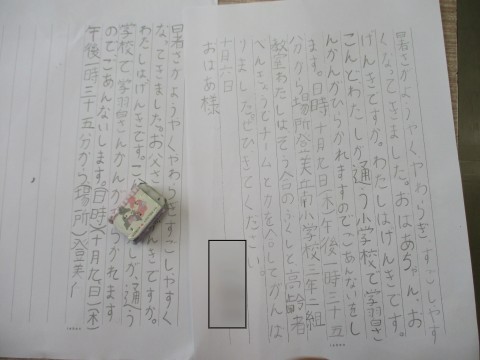 暑さがようやくやわらぎすごしやす
くなってきました。おばあちゃん、お
げんきですか。わたしはげんきです。
こんどわたしが通う小学校で学習さ
んかんがひらかれますのでごあんないをし
ます。日時十月九日(木)午後一時三十五
分から場所登美丘南小学校三年二組
教室わたしはそう合のふくしと高齢者
へんきょうでチームと力を合してがんば
りました。ぜひきてください。
十月六日
おばあ様
暑さがようやくやわらぎすごしやすく
なってきました。お父さ んきですか。
わたしはげんきです。こ しが、通う
学校で学習さんかんが かれます
のでごあんないします。日時)十月九日(木)
午後一時三十五分から(場所)登美